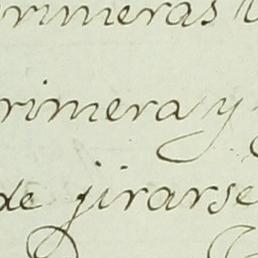 primeras
primera y
de jirarse